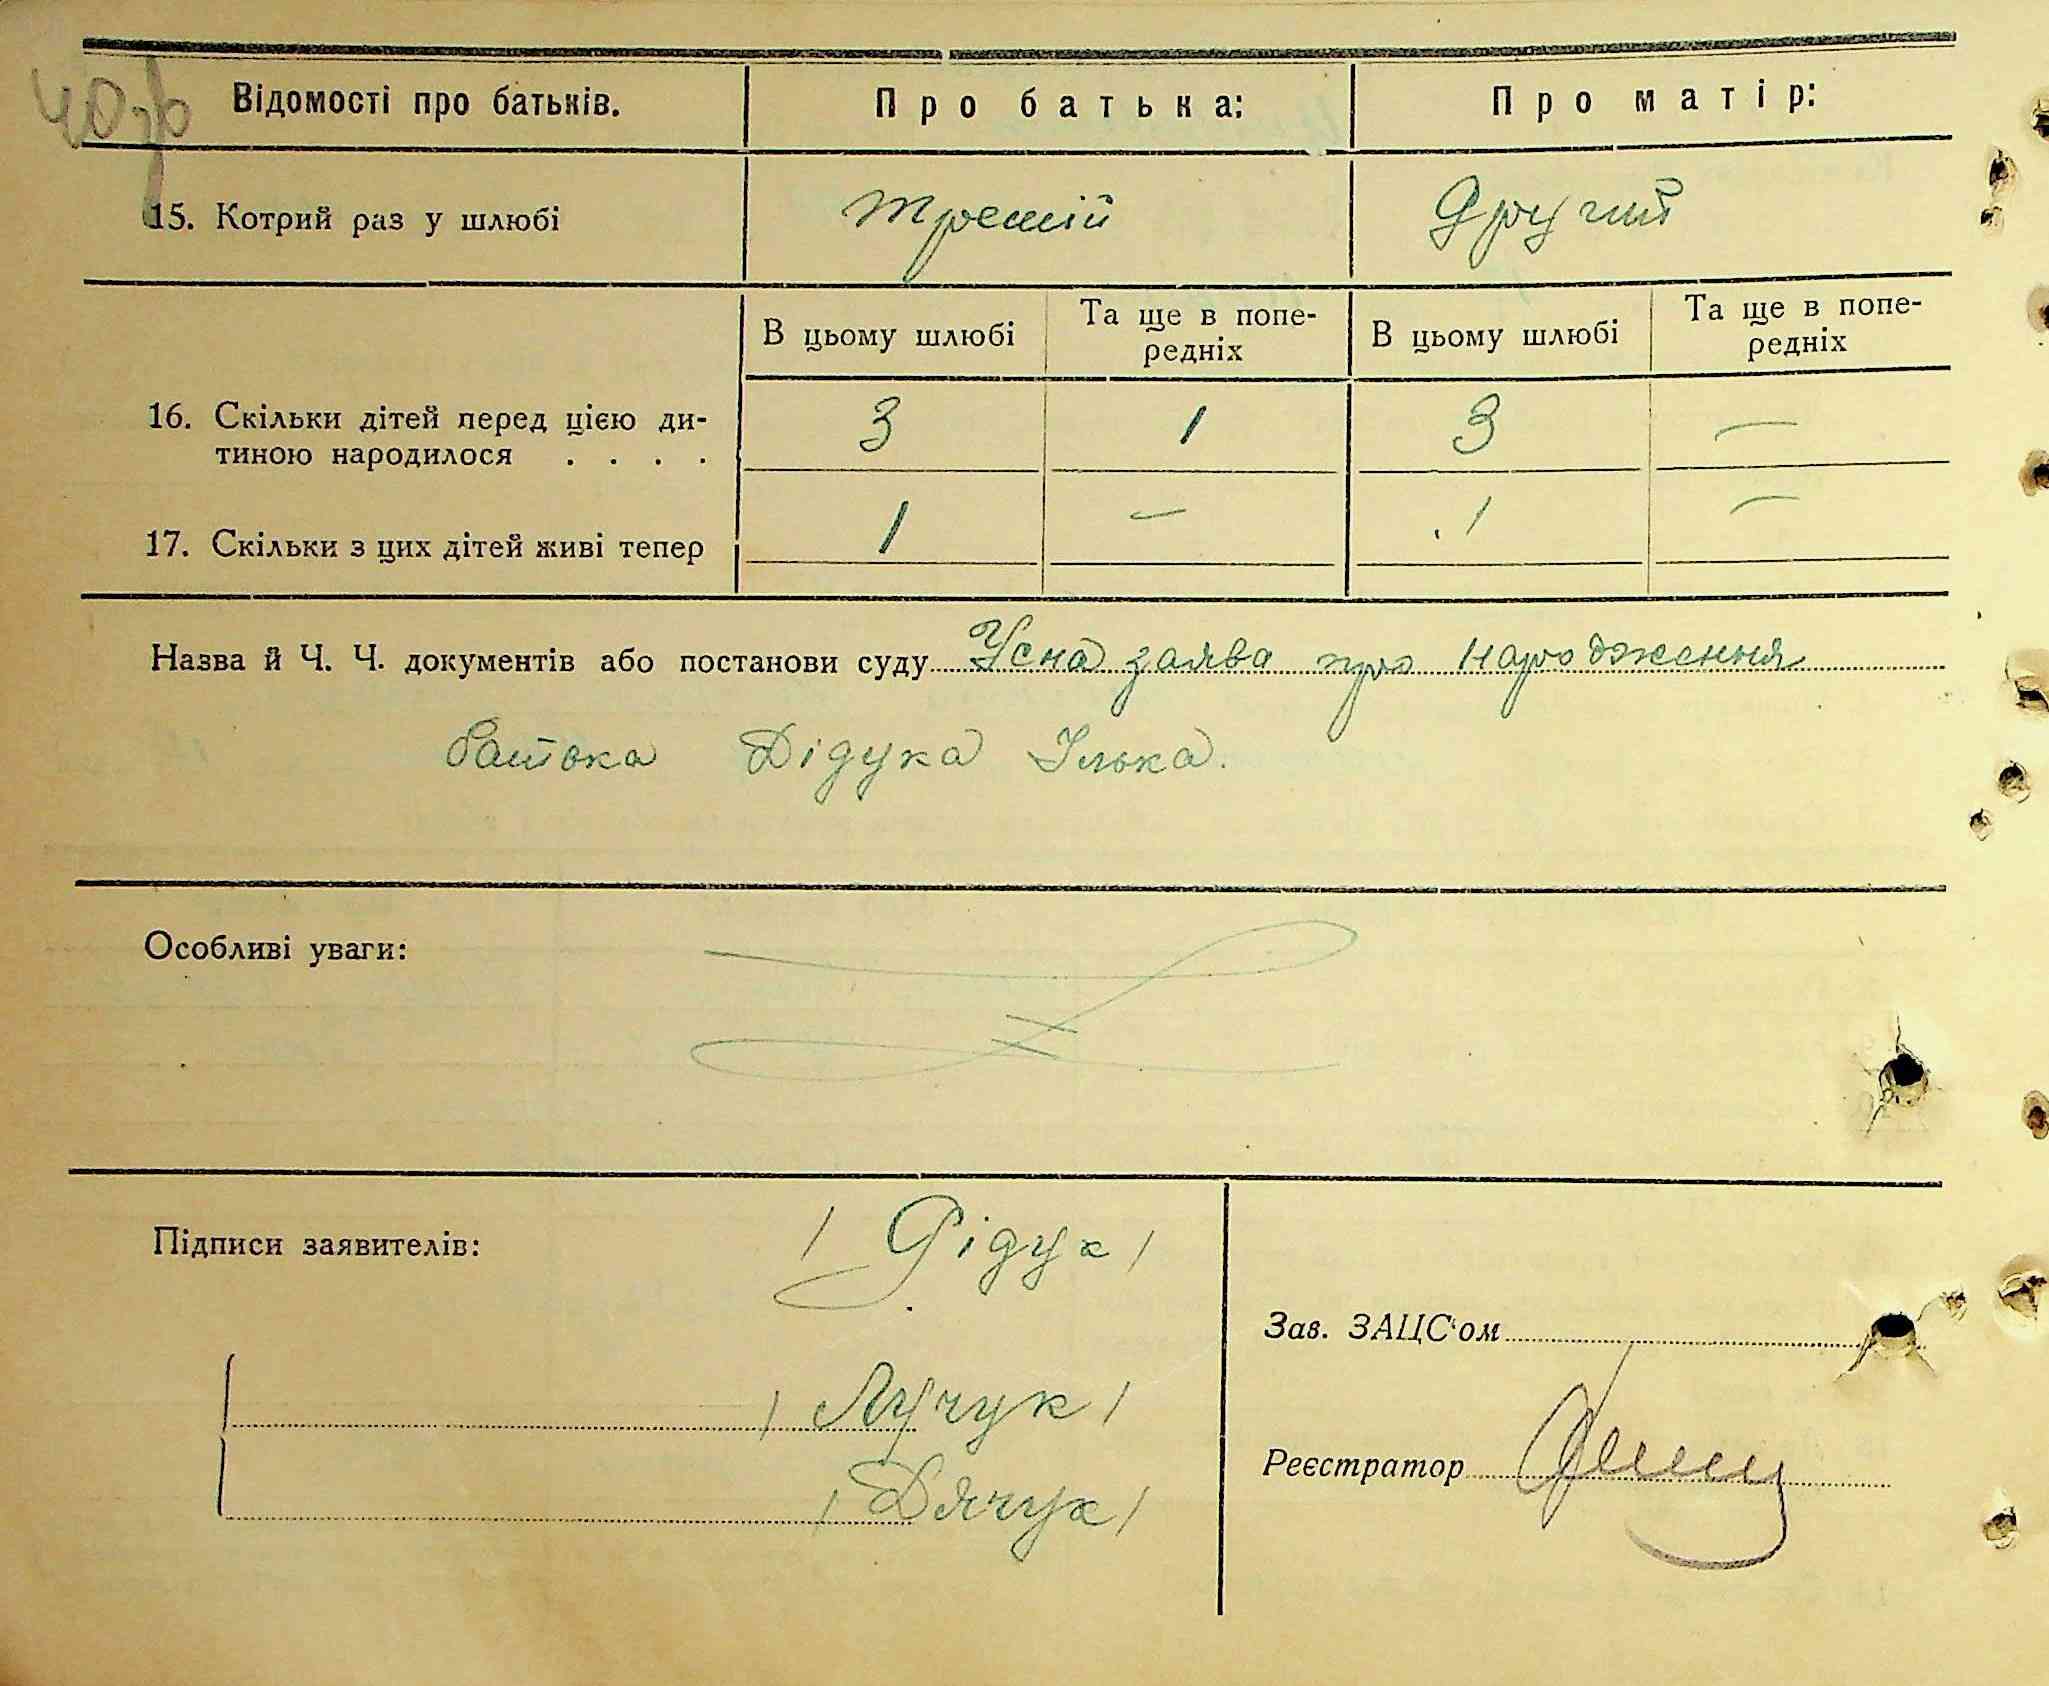 40зв
Відомості про батьків. Про батька: Про матір:
15. Котрий раз у шлюбі третій другий
В цьому шлюбі Та ще в попе-редніх В цьому шлюбі Та ще в попе-редніх
16. Скільки дітей перед цією ди- 3 1 3 —
тиною народилося . . . .
17. Скільки з цих дітей живі тепер 1 — 1 —
Назва й Ч. Ч. документів або постанови суду Усна заява про народження
батька Дідука Ілька.
Особливі уваги:
Підписи заявителів: / Дідук /
Зав. ЗАЦС'ом
/ Лучук /
Реєстратор
/ Дячук /